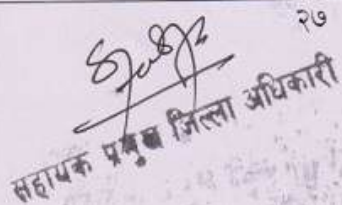 २७
सहायक प्रमुख जिल्ला अधिकारी